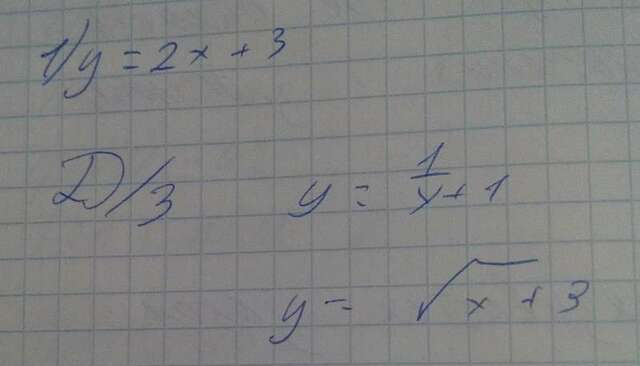 1) y = 2x + 3
Д/З y = 1/x + 1
y = √x + 3